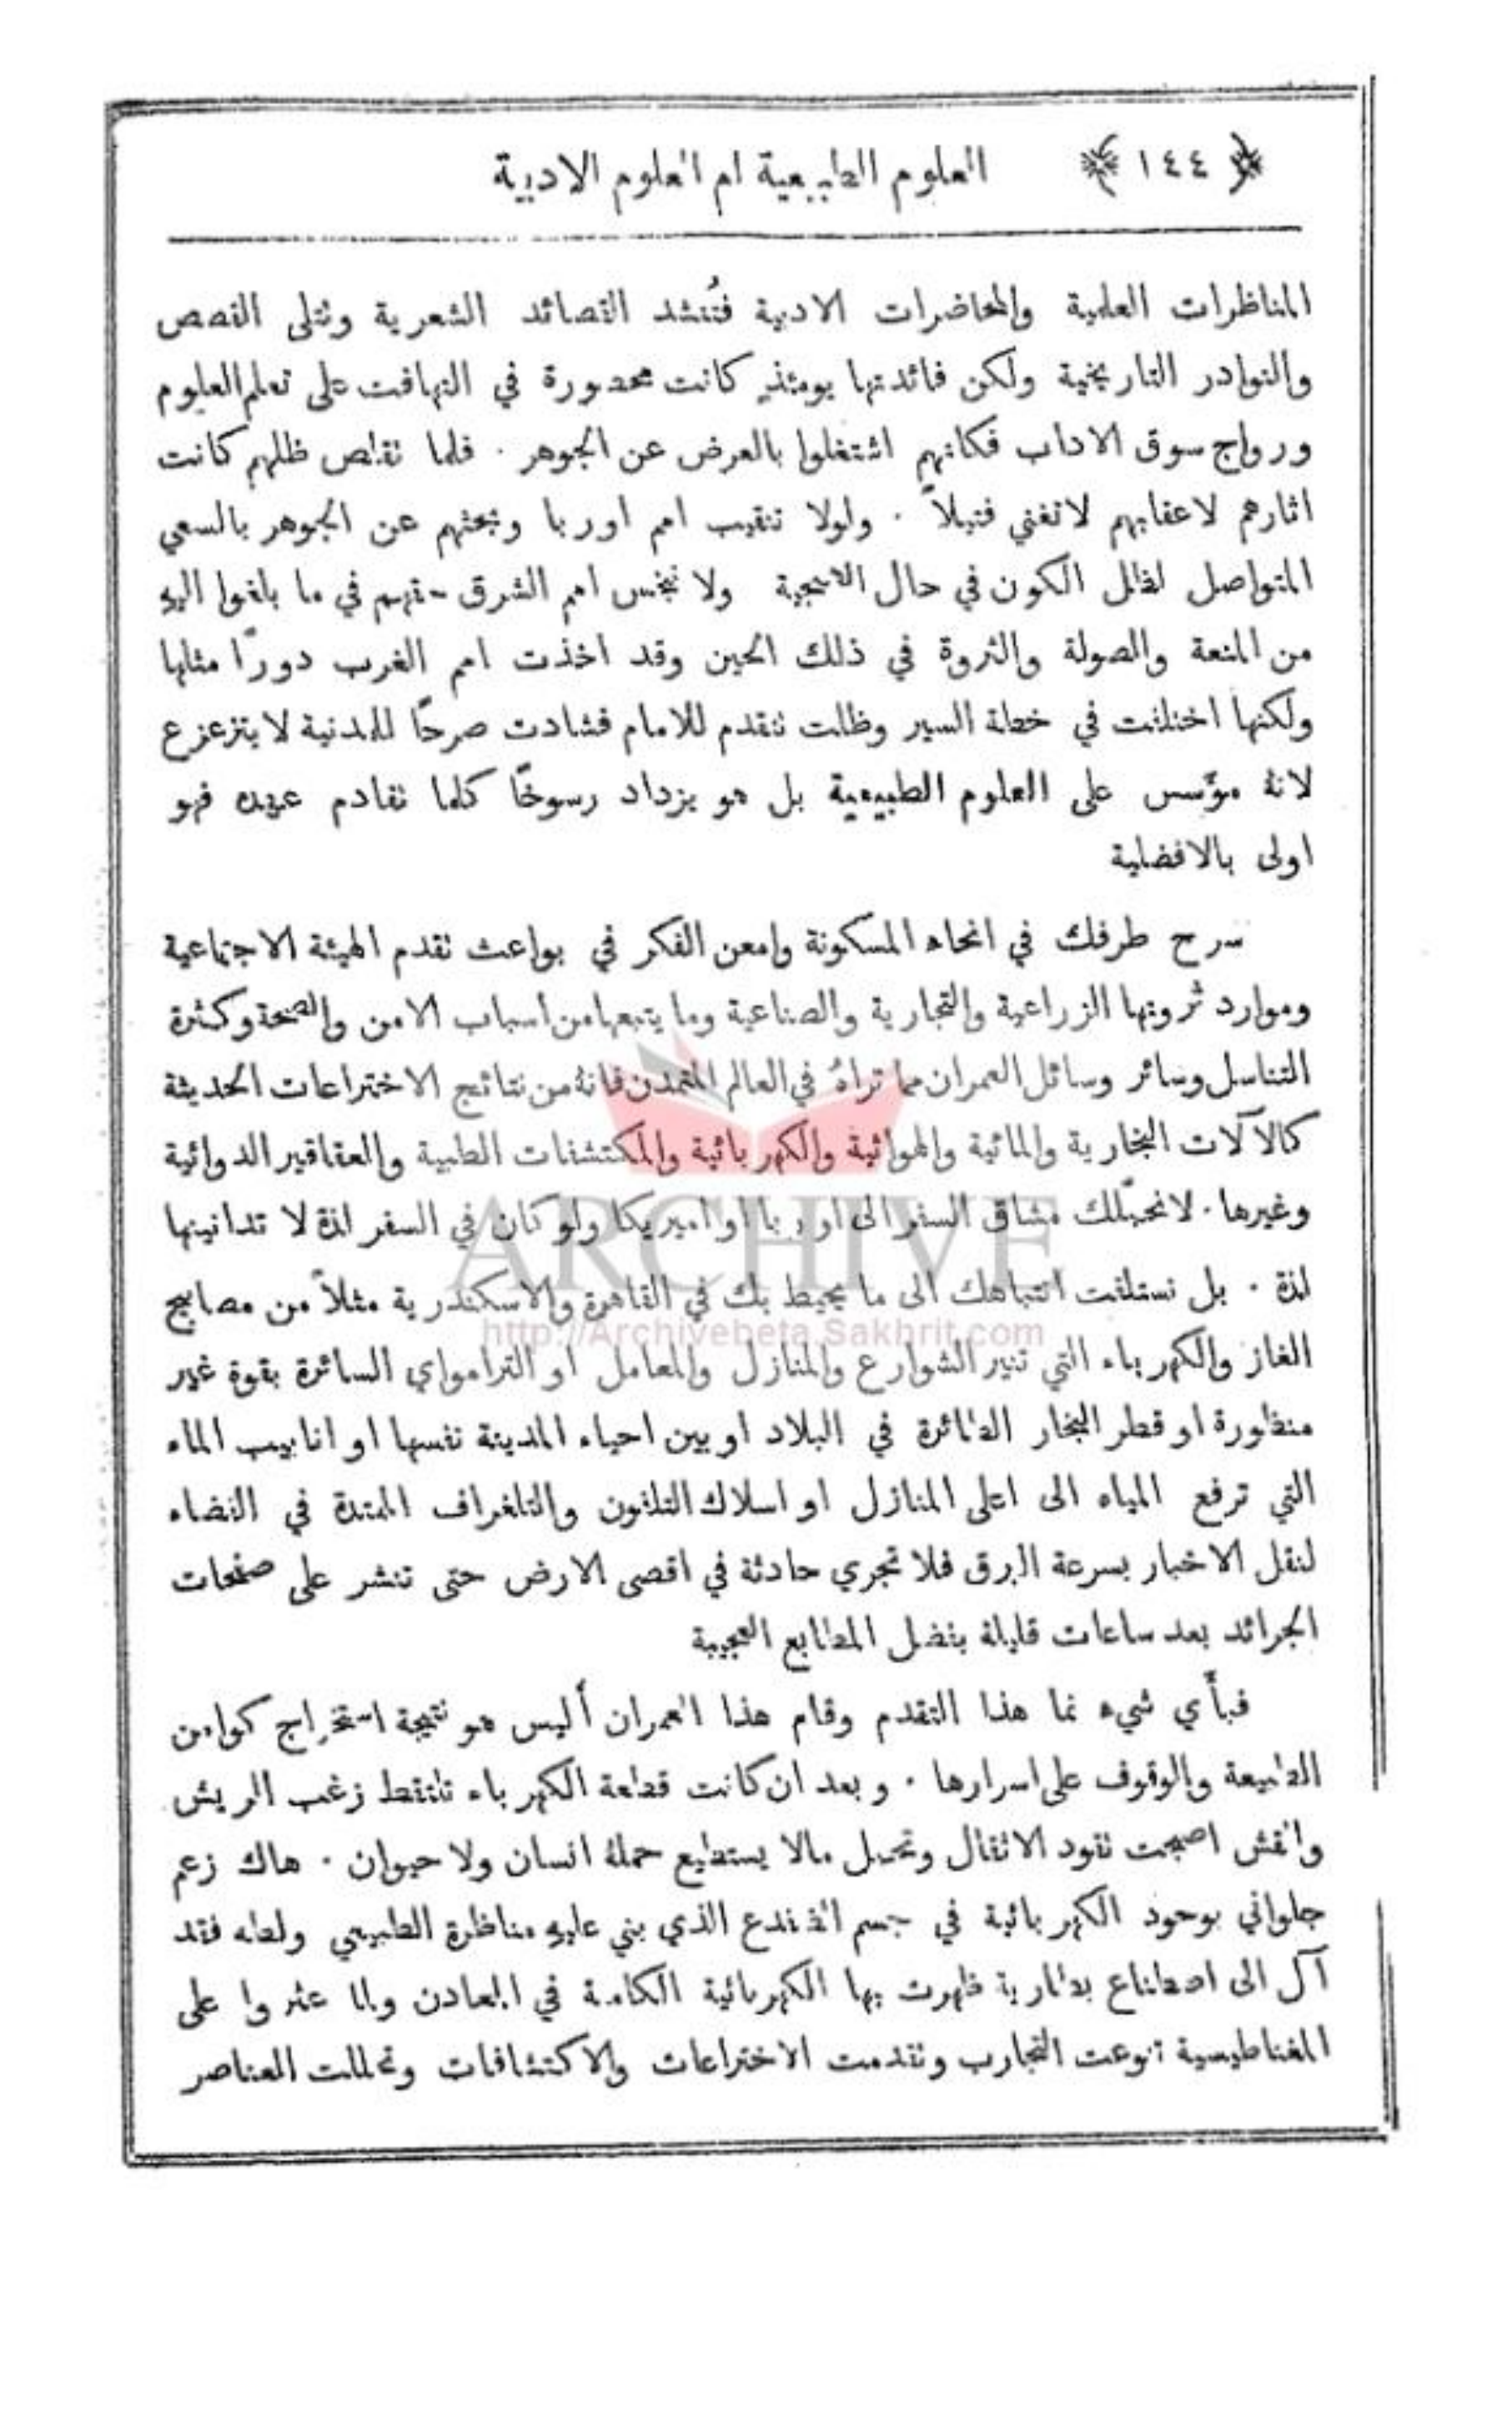 ﴿ ١٤٤ ﴾ العلوم الطبيعية ام العلوم الادبية
المناظرات العلمية والمحاضرات الادبية فتُنشد القصائد الشعرية وتتلى القصص
والنوادر التاريخية ولكن فائدتها يومئذٍ كانت محصورة في التهافت على تعلم العلوم
ورواج سوق الاداب فكانهم اشتغلوا بالعرض عن الجوهر . فلما تقلص ظلهم كانت
اثارهم لاعقابهم لا تغني فتيلاً . ولولا تنقيب امم اوربا وبحثهم عن الجوهر بالسعي
المتواصل لظل الكون في حال الهمجية ولا نبخس امم الشرق حقهم في ما بلغوا اليهِ
من المنعة والصولة والثروة في ذلك الحين وقد اخذت امم الغرب دورًا مثلها
ولكنها اختلفت في خطة السير وظلت تتقدم للامام فشادت صرحًا للمدنية لا يتزعزع
لانهُ مؤسس على العلوم الطبيعية بل هو يزداد رسوخًا كلما تقادم عهده فهو
اولى بالافضلية
سرح طرفك في انحاء المسكونة وامعن الفكر في بواعث تقدم الهيئة الاجتماعية
وموارد ثروتها الزراعية والتجارية والصناعية وما يتبعها من اسباب الامن والصحة وكثرة
التناسل وسائر وسائل العمران مما تراهُ في العالم المتمدن فانهُ من نتائج الاختراعات الحديثة
كالآلات البخارية والمائية والهوائية والكهربائية والمكتشفات الطبية والعقاقير الدوائية
وغيرها . لا نحمّلك مشاق السفر الى اوربا او اميريكا ولو كان في السفر لذة لا تدانينها
لذة . بل نستلفت انتباهك الى ما يحيط بك في القاهرة والاسكندرية مثلاً من مصابيح
الغاز والكهرباء التي تنير الشوارع والمنازل والمعامل او الترامواي السائرة بقوة غير
منظورة او قطر البخار الطائرة في البلاد او بين احياء المدينة نفسها او انابيب الماء
التي ترفع المياه الى اعلى المنازل او اسلاك التلفون والتلغراف الممتدة في الفضاء
لنقل الاخبار بسرعة البرق فلا تجري حادثة في اقصى الارض حتى تنشر على صفحات
الجرائد بعد ساعات قليلة بفضل المطابع العجيبة
فبأي شيء نما هذا التقدم وقام هذا العمران أليس هو نتيجة استخراج كوامن
الطبيعة والوقوف على اسرارها . وبعد ان كانت قطعة الكهرباء تلتقط زغب الريش
والقش اصبحت تقود الاثقال وتحمل مالا يستطيع حملهُ انسان ولا حيوان . هاك زعم
جلواني بوحود الكهربائية في جسم الضفدع الذي بني عليهِ مناظرة الطبيعي ولطه فقد
آل الى اصطناع بطارية ظهرت بها الكهربائية الكامنة في المعادن ولما عثروا على
المغناطيسية تنوعت التجارب وتقدمت الاختراعات والاكتشافات وتحللت العناصر
ARCHIVE
http://Archivebeta.Sakhrit.com